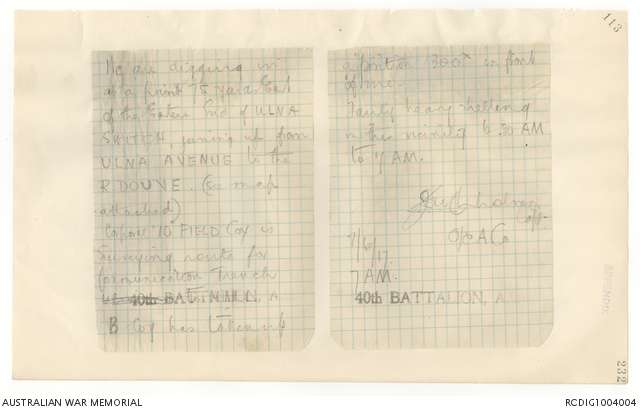 113
We are digging in
at a point 75 yards East
of the Eastern End of ULNA
SWITCH, joining up from
ULNA AVENUE to the
R. DOUVE. (See map
attached)
10 FIELD Coy is
Surveying route for
Communication Trench
40th BATTALION, A
B Coy has taken up
a position 300x in front
of me.
Fairly heavy shelling
in this vicinity 6.30 AM
to 7 AM.
Capt.
O/C A Co
9/6/17
7 AM.
40th BATTALION, A
232
AUSTRALIAN WAR MEMORIAL
RCDIG1004004